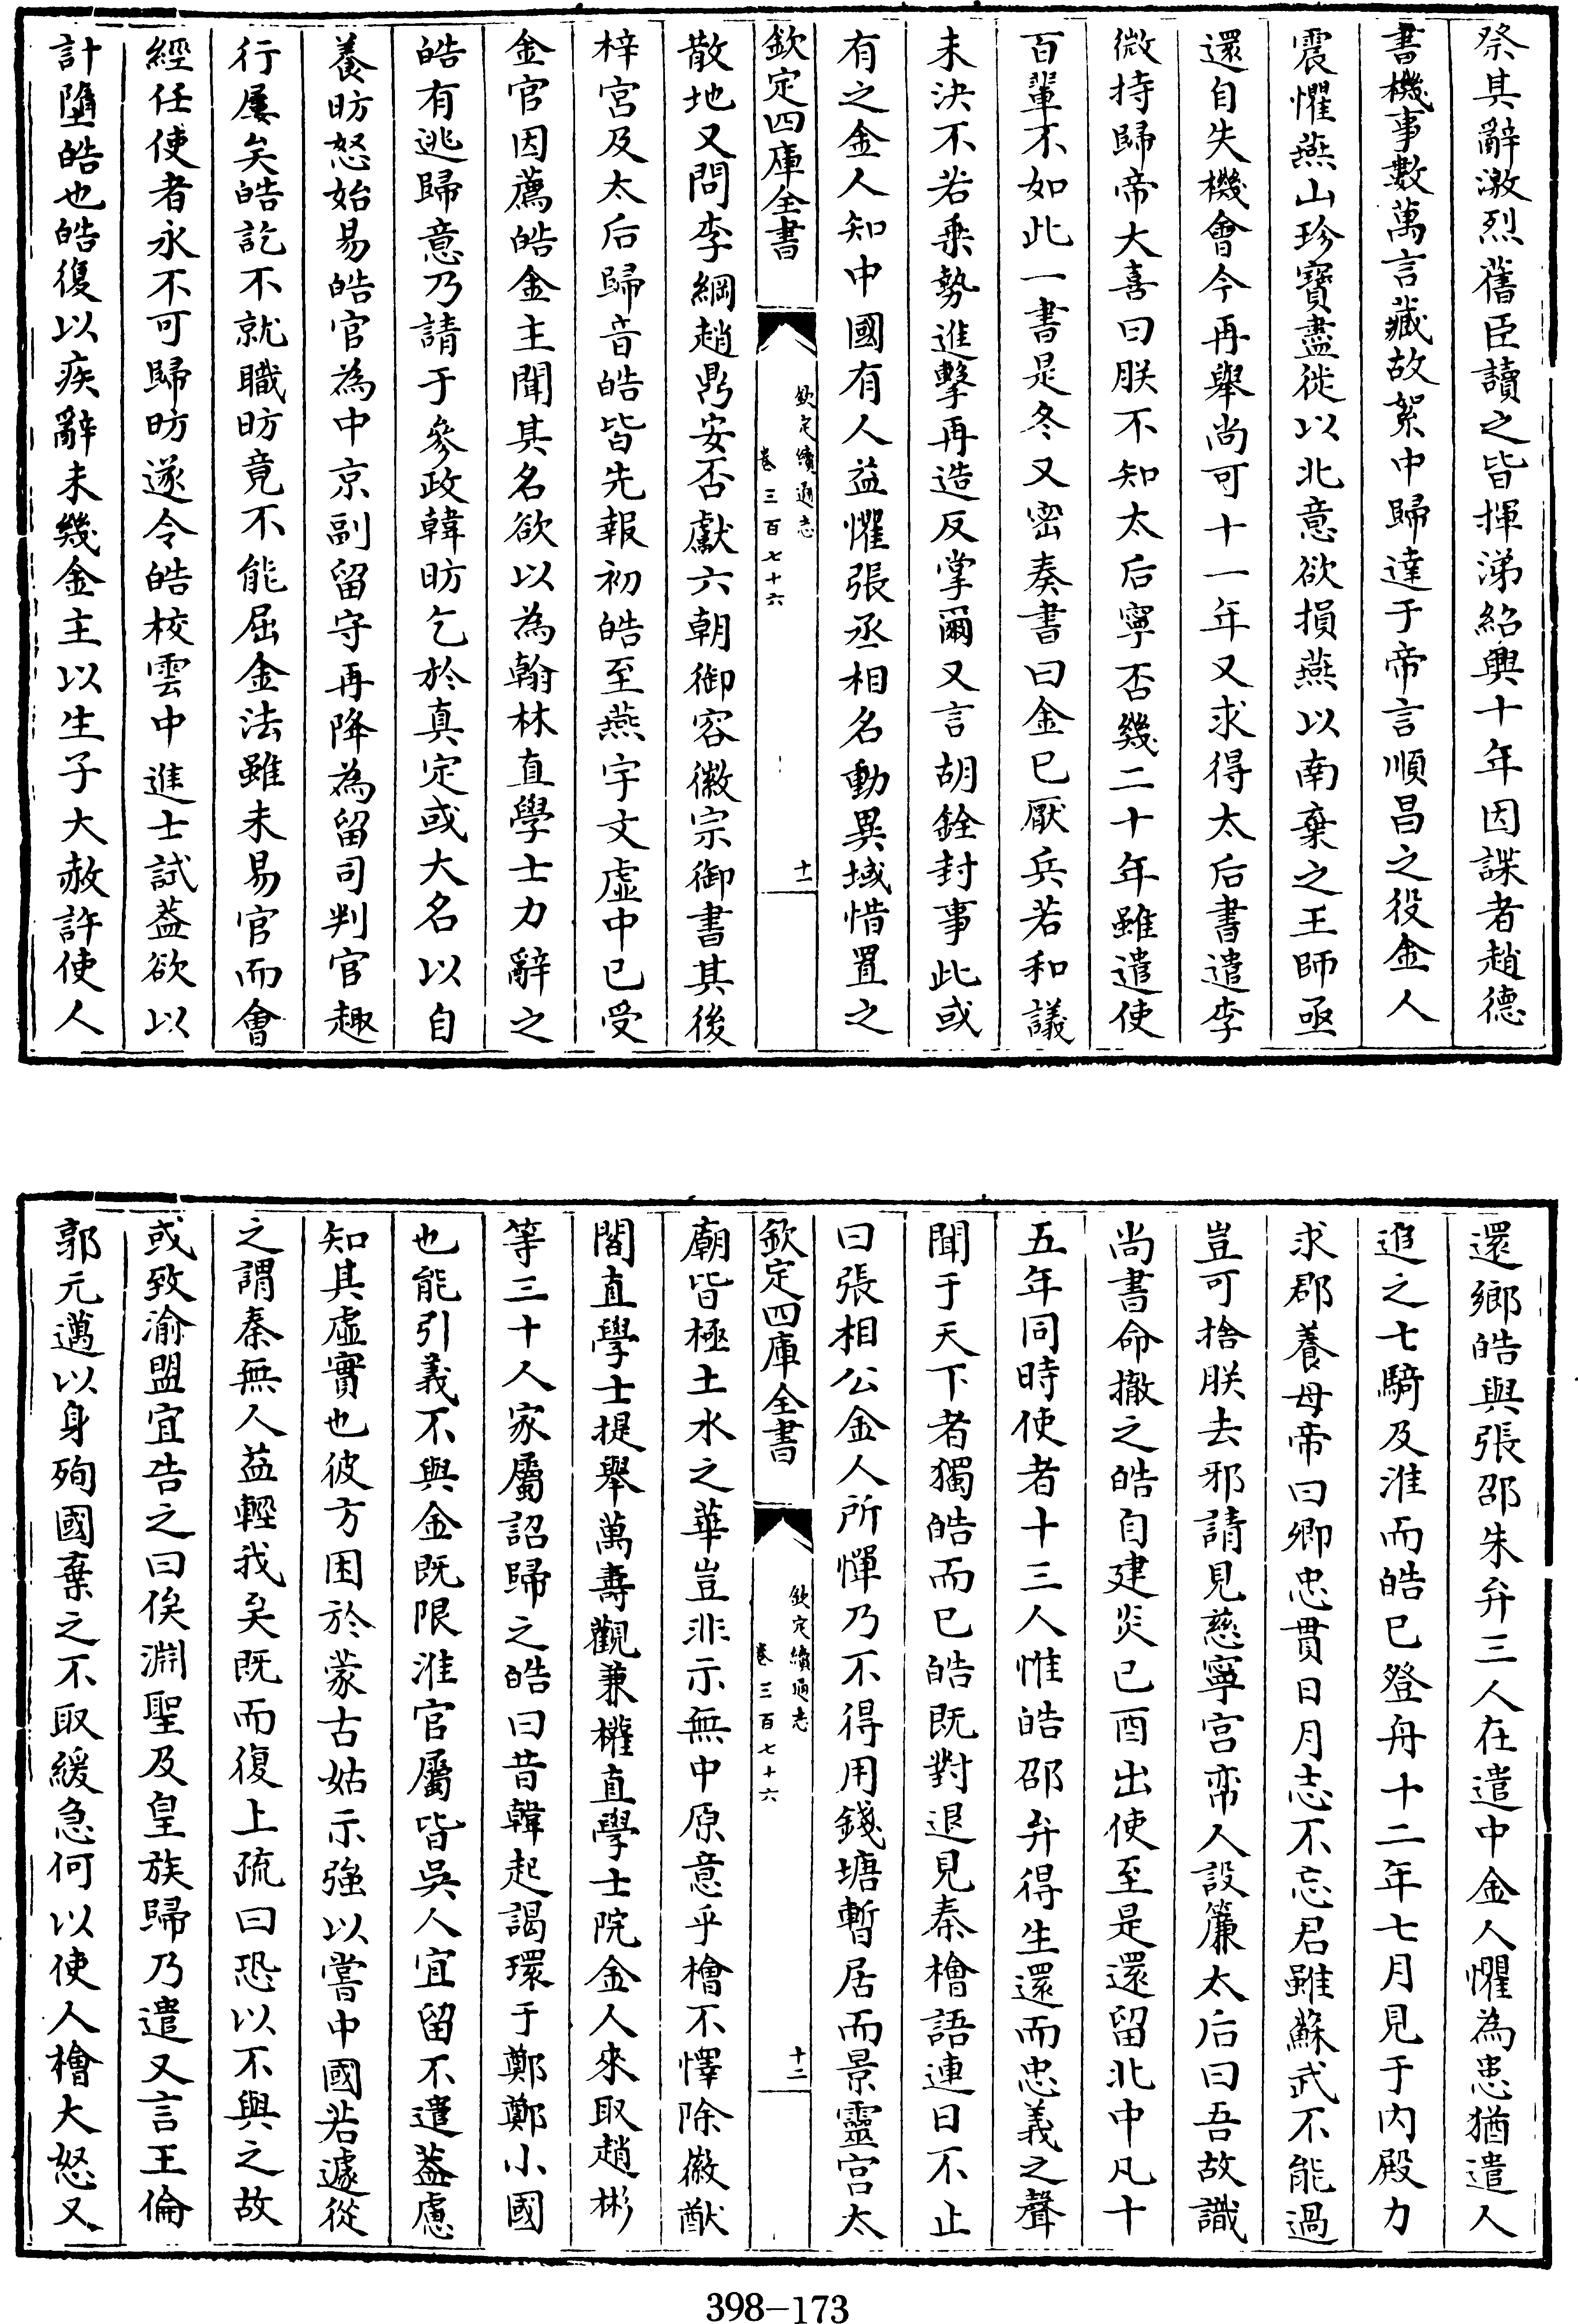 祭其辭激烈舊臣讀之皆揮涕紹興十年因諜者趙德
書機事數萬言藏故絮中歸達于帝言順昌之役金人
震懼燕山珍寶盡徙以北意欲損燕以南棄之王師亟
還自失機會今再舉尚可十一年又求得太后書遣李
微持歸帝大喜曰朕不知太后寧否幾二十年雖遣使
百輩不如此一書是冬又密奏書曰金已厭兵若和議
未決不若乗勢進擊再造反掌爾又言胡銓封事此或
有之金人知中國有人益懼張丞相名動異域惜置之
欽定四庫全書
欽定續通志
卷三百七十六
十一
散地又問李綱趙鼎安否獻六朝御容徽宗御書其後
梓宮及太后歸音皓皆先報初皓至燕宇文虛中已受
金官因薦皓金主聞其名欲以為翰林直學士力辭之
皓有逃歸意乃請于參政韓昉乞於真定或大名以自
養昉怒始易皓官為中京副留守再降為留司判官趣
行屢矣皓訖不就職昉竟不能屈金法雖未易官而會
經任使者永不可歸昉遂令皓校雲中進士試葢欲以
計墮皓也皓復以疾辭未幾金主以生子大赦許使人
還鄉皓與張邵朱弁三人在遣中金人懼為患猶遣人
追之七騎及淮而皓已登舟十二年七月見于內殿力
求郡養母帝曰卿忠貫日月志不忘君雖蘇武不能過
豈可捨朕去邪請見慈寧宮帘人設簾太后曰吾故識
尚書命撤之皓自建炎己酉出使至是還留北中凡十
五年同時使者十三人惟皓邵弁得生還而忠義之聲
聞于天下者獨皓而已皓既對退見秦檜語連日不止
曰張相公金人所憚乃不得用錢塘暫居而景靈宮太
欽定四庫全書
欽定續通志
卷三百七十六
十二
廟皆極土木之華豈非示無中原意乎檜不懌除徽猷
閣直學士提舉萬壽觀兼權直學士院金人來取趙彬
等三十人家屬詔歸之皓曰昔韓起謁環于鄭鄭小國
也能引義不與金既限淮官屬皆吳人宜留不遣葢慮
知其虛實也彼方困於蒙古姑示強以嘗中國若遽從
之謂秦無人益輕我矣既而復上疏曰恐以不與之故
或致渝盟宜告之曰俟淵聖及皇族歸乃遣又言王倫
郭元邁以身殉國棄之不取緩急何以使人檜大怒又
398-173